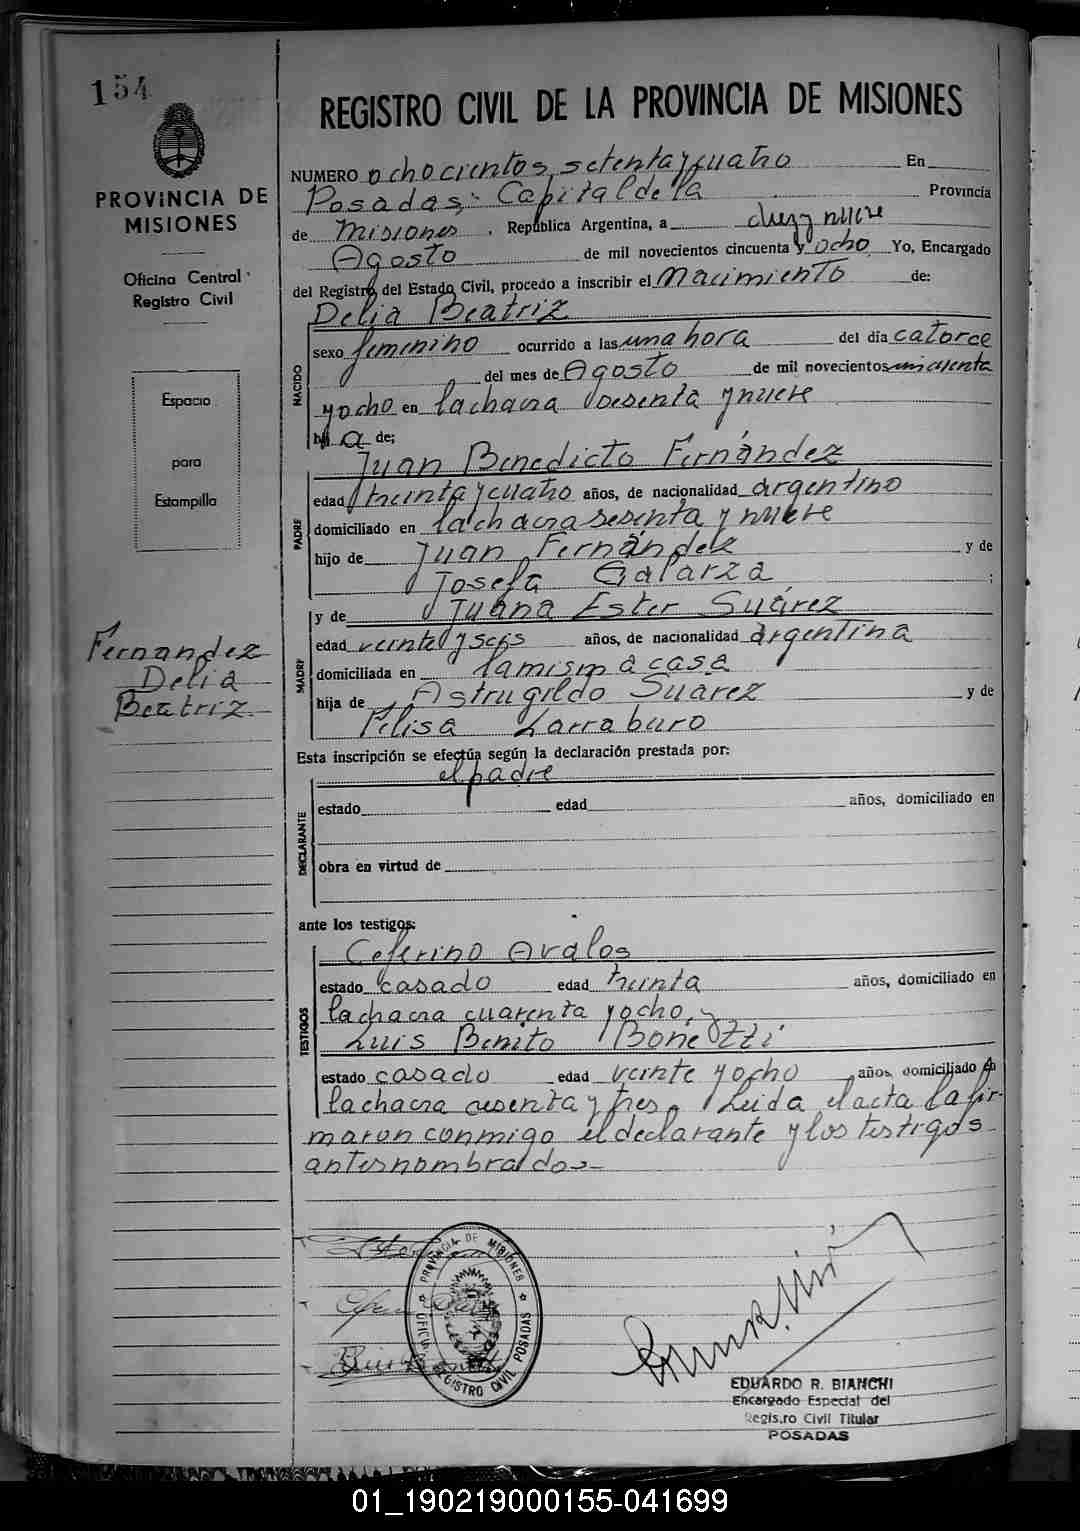 154
PROVINCIA DE
MISIONES
Oficina Central
Registro Civil
Espacio
para
Estampilla
Fernandez
Delia
Beatriz
REGISTRO CIVIL DE LA PROVINCIA DE MISIONES
NUMERO ochocientos setenta y cuatro En
Posadas, Capital de la Provincia
de Misiones, República Argentina, a diez y nueve
Agosto de mil novecientos cincuenta y ocho Yo, Encargado
del Registro del Estado Civil, procedo a inscribir el Nacimiento de:
Delia Beatriz
NACIDO
sexo femenino ocurrido a las una hora del día catorce
del mes de Agosto de mil novecientos cincuenta
y ocho en la chacra sesenta y nueve
hija de;
Juan Benedicto Fernández
PADRE
edad treinta y cuatro años, de nacionalidad argentino
domiciliado en la chacra sesenta y nueve
hijo de Juan Fernández y de
Josefa Galarza ;
MADRE
y de Juana Ester Suárez
edad veinte y seis años, de nacionalidad argentina
domiciliada en la misma casa
hija de Astrugildo Suárez y de
Felisa Larraburo
Esta inscripción se efectúa según la declaración prestada por:
el padre
DECLARANTE
estado edad años, domiciliado en
obra en virtud de
ante los testigos:
Ceferino Avalos
TESTIGOS
estado casado edad treinta años, domiciliado en
la chacra cuarenta y ocho, y
Luis Benito Bonetti
estado casado edad veinte y ocho años, domiciliado en
la chacra sesenta y tres. Leida el acta la fir-
maron conmigo el declarante y los testigos
antes nombrados.-
PROVINCIA DE MISIONES
OFICINA REGISTRO CIVIL POSADAS
EDUARDO R. BIANCHI
Encargado Especial del
Registro Civil Titular
POSADAS
01_190219000155-041699